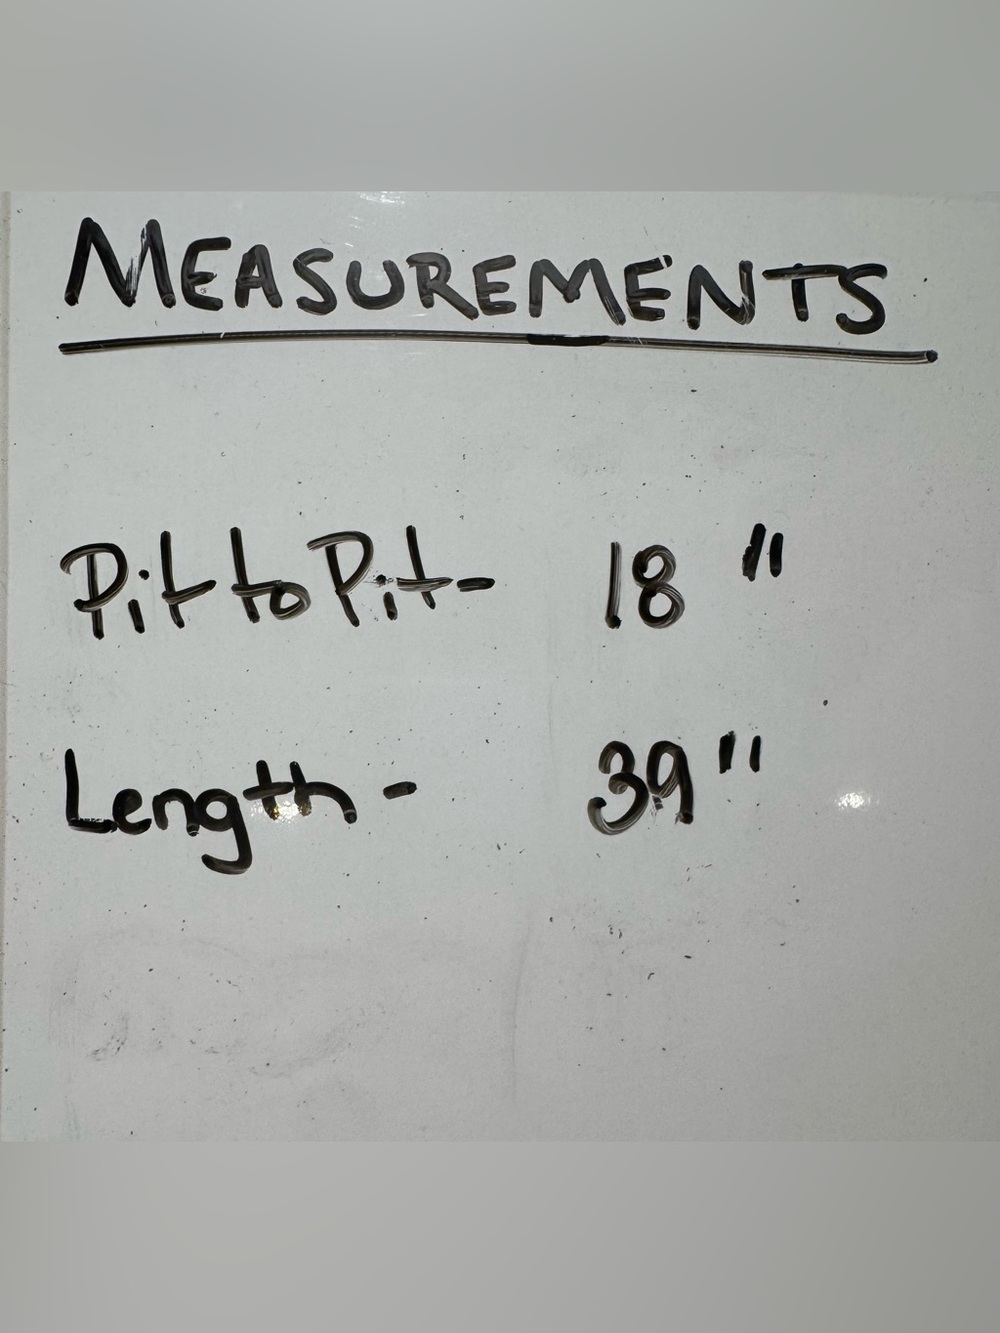 MEASUREMENTS
Pit to Pit- 18"
Length- 39"